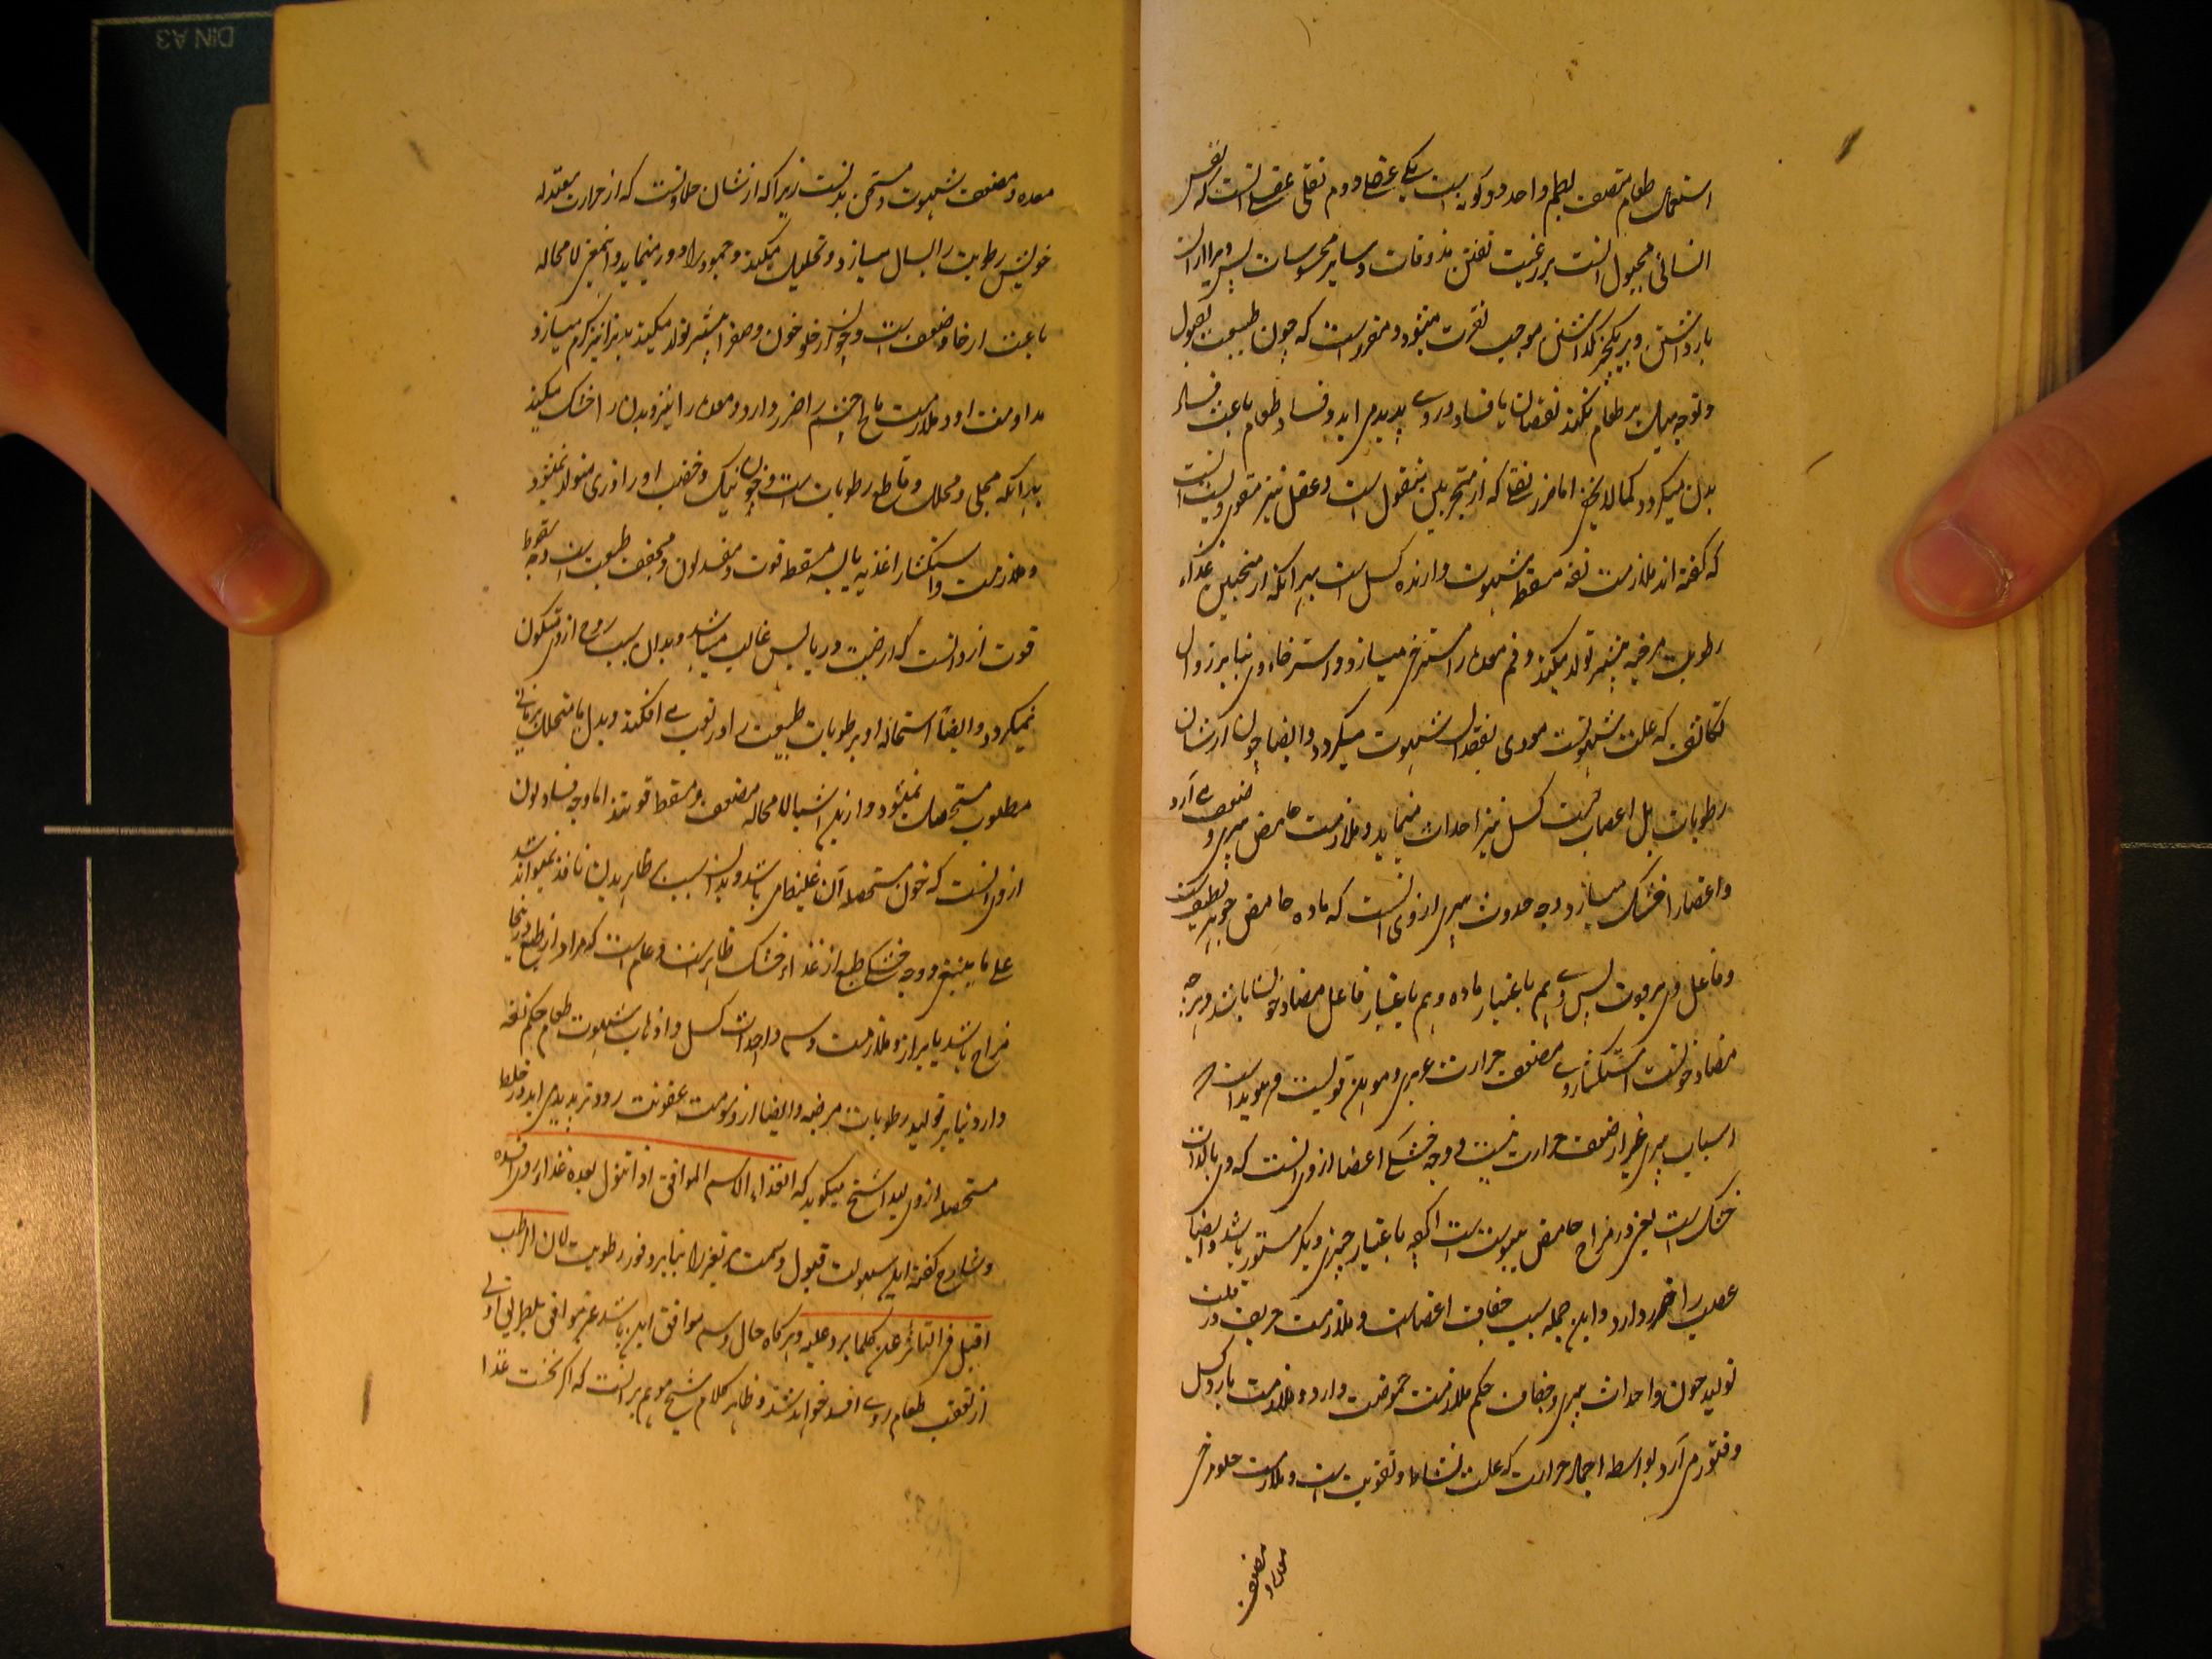 استعمال طعام متصف بطعم واحد دو گونه است یکی عقلی دوم نقلی عقلی آنست که نفس
انسانی مجبول است بر رغبت تفنن مذوقات و سایر محسوسات پس ویرا ازان
بازداشتن و بر یکچیز گذاشتن موجب نفرت میشود و مقرر است که چون طبیعت بقبول
و توجه میل بر طعام نکند نقصان یا فساد در وی پدید می آید و فساد طعام باعث فساد
بدن میگردد کما لا یخفی اما ضرر نقلی که از متجربین منقول است و عقل نیز مقوی ویست آنست
که گفته اند ملازمت تفه مسقط شهوت و آرنده کسل است برای آنکه از چنین غذاء
رطوبت مرخیه بیشتر تولد میکند و فم معده را مسترخی میسازد و استرخاء وی بنا بر زوال
تکاثفی که علت شهوتست مودی بفقدان شهوت میگردد و ایضا چون از شان
رطوبات بل اعصاب است کسل نیز احداث مینماید و ملازمت حامض پیری و ضعف می آرد
و اعضا را خشک میسازد وجه حدوث پیری از وی آنست که ماده حامض جوهر لطیف
و فاعل وی برودت پس وی هم باعتبار ماده و هم باعتبار فاعل مضاد خون باشد و هرچه
مضاد خونست استکثار وی مضعف حرارت غریزی و موهن قویست
اسباب پیری غیر از ضعف حرارت نیست و وجه خشکی اعضا از وی آنست که وی بالذات
خشک است یعنی در مزاج حامض یبوست است اگرچه باعتبار چیزی دیگر مستور باشد و ایضا
عصب را ضرر دارد و این جمله سبب جفاف اعضاست و ملازمت حریف در قلت
تولید خون و احداث پیری و جفاف حکم ملازمت حموضت دارد و ملازمت بارد کسل
و فتور می آرد بواسطه اخماد حرارت که علت نشاط و تقویت است و ملازمت حلو مرخی
معده و مضعف
معده و مضعف شهوت و مسخن بدنست زیرا که از شان حلاوتست که از حرارت معتدله
خویش رطوبت را سیال میسازد و تحلیل میکند و جمود را دور مینماید و اینمعنی لا محاله
باعث ارخا و ضعف است و چون از حلو خون و صفرا بیشتر تولد میکند بدنرا نیز گرم میسازد
مداومت او و ملازمت مالح چشم را ضرر دارد و معده را نیز و بدن را خشک میکند
برای آنکه مجلی و محلل و قاطع رطوبات است و خون نیک و خصب او را از وی متولد نمیشود
و ملازمت و استکثار اغذیه یابسه مسقط قوت و مفسد لون و مجفف طبیعت است وجه سقوط
قوت از و آنست که ارضیت در یابس غالب میباشد و بدان سبب روح از وی متکون
نمیگردد و ایضاً استحاله او برطوبات طبیعت را در تعب می افکند و بدل ما یتحلل
مطلوب مستحصل نمیشود و از این اشیا لا محاله مضعف و مسقط قوتند اما وجه فساد لون
از وی آنست که خون مستحصل آن غلیظ می باشد و بدان سبب بظاهر بدن نافذ نمیتواند شد
علی ما ینبغی و وجه خشکی طبع از غذاء خشک ظاهر است و عام است که مراد از طبع درینجا
مزاج باشد یا براز و ملازمت دسم در احداث کسل و اذهاب شهوت طعام حکم تفه
دارد بنا بر تولید رطوبات مرخیه و ایضا از دسومت عفونت زودتر پدید می آید در خلط
مستحصل از وی لهذا شیخ میگوید که الغذاء الدسم الموافق اذا تنوول بعده غذاء ردی افسده
و شارح گفته ای سهولت قبول دسمت تغیر را بنا بر وفور رطوبت لان الرطب
اقبل فی التاثر عن کلما یرد علیه و هرگاه حال دسم موافق این باشد غیر موافق بطریق اولی
از تعقب طعام ردی افسد خواهد شد و ظاهر کلام شیخ موهم بر آنست که اگر نخست غذا